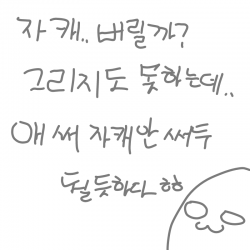 자캐.. 버릴까?
그리지도 못하는데..
애써 자캐 안 써두
될듯하다 ㅎㅎ